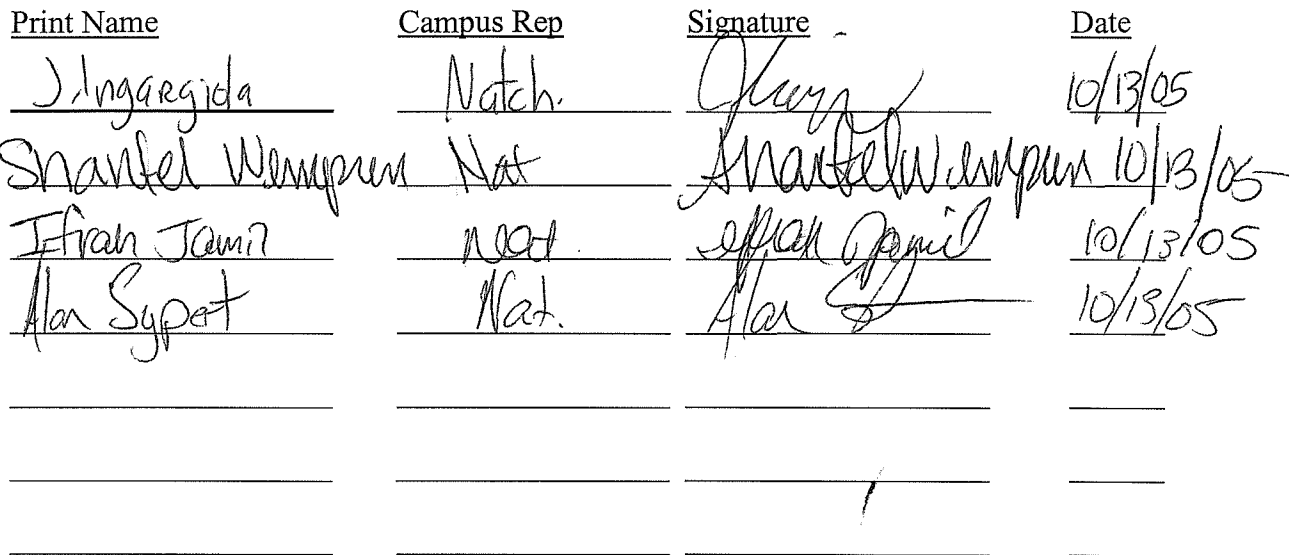 Print Name Campus Rep Signature Date
J. Ingargiola Natch. 10/13/05
Shantel Wempren Nat Shantel Wempren 10/13/05
Ifrah Jamil Nat. Ifrah Jamil 10/13/05
Alan Sypert Nat. Alan 10/13/05